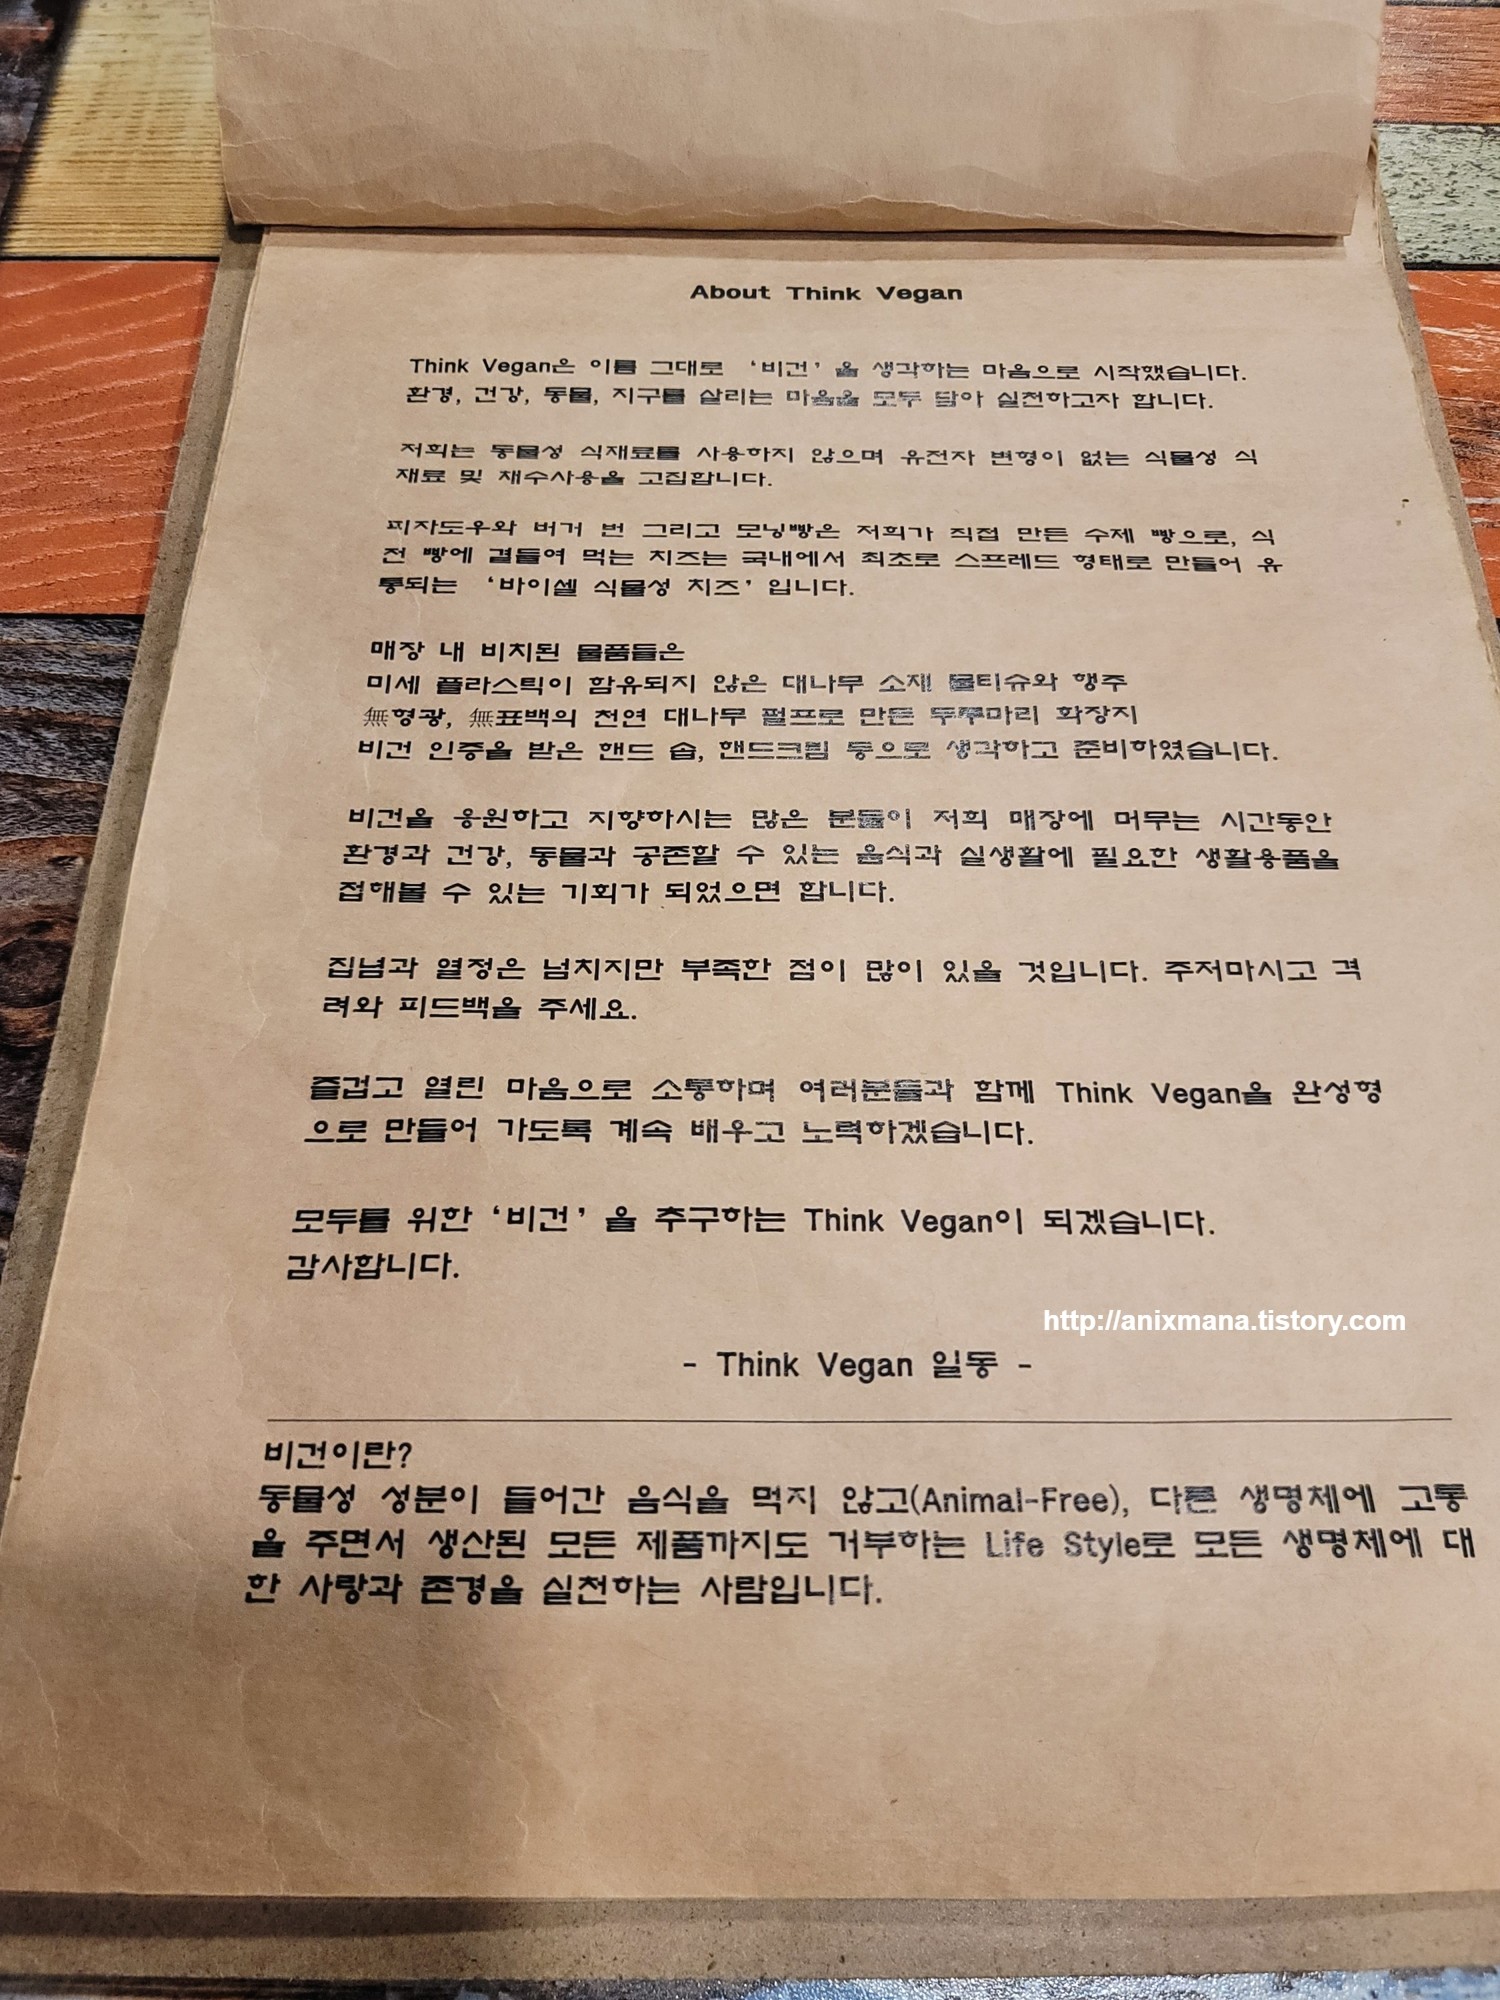 About Think Vegan
Think Vegan은 이름 그대로 ‘비건’을 생각하는 마음으로 시작했습니다.
환경, 건강, 동물, 지구를 살리는 마음을 모두 담아 실천하고자 합니다.
저희는 동물성 식재료를 사용하지 않으며 유전자 변형이 없는 식물성 식
재료 및 채수사용을 고집합니다.
피자도우와 버거 번 그리고 모닝빵은 저희가 직접 만든 수제 빵으로, 식
전 빵에 곁들여 먹는 치즈는 국내에서 최초로 스프레드 형태로 만들어 유
통되는 ‘바이셀 식물성 치즈’입니다.
매장 내 비치된 물품들은
미세 플라스틱이 함유되지 않은 대나무 소재 물티슈와 행주
無형광, 無표백의 천연 대나무 펄프로 만든 두루마리 화장지
비건 인증을 받은 핸드 솝, 핸드크림 등으로 생각하고 준비하였습니다.
비건을 응원하고 지향하시는 많은 분들이 저희 매장에 머무는 시간동안
환경과 건강, 동물과 공존할 수 있는 음식과 실생활에 필요한 생활용품을
접해볼 수 있는 기회가 되었으면 합니다.
집념과 열정은 넘치지만 부족한 점이 많이 있을 것입니다. 주저마시고 격
려와 피드백을 주세요.
즐겁고 열린 마음으로 소통하며 여러분들과 함께 Think Vegan을 완성형
으로 만들어 가도록 계속 배우고 노력하겠습니다.
모두를 위한 ‘비건’을 추구하는 Think Vegan이 되겠습니다.
감사합니다.
http://anixmana.tistory.com
- Think Vegan 일동 -
비건이란?
동물성 성분이 들어간 음식을 먹지 않고(Animal-Free), 다른 생명체에 고통
을 주면서 생산된 모든 제품까지도 거부하는 Life Style로 모든 생명체에 대
한 사랑과 존경을 실천하는 사람입니다.